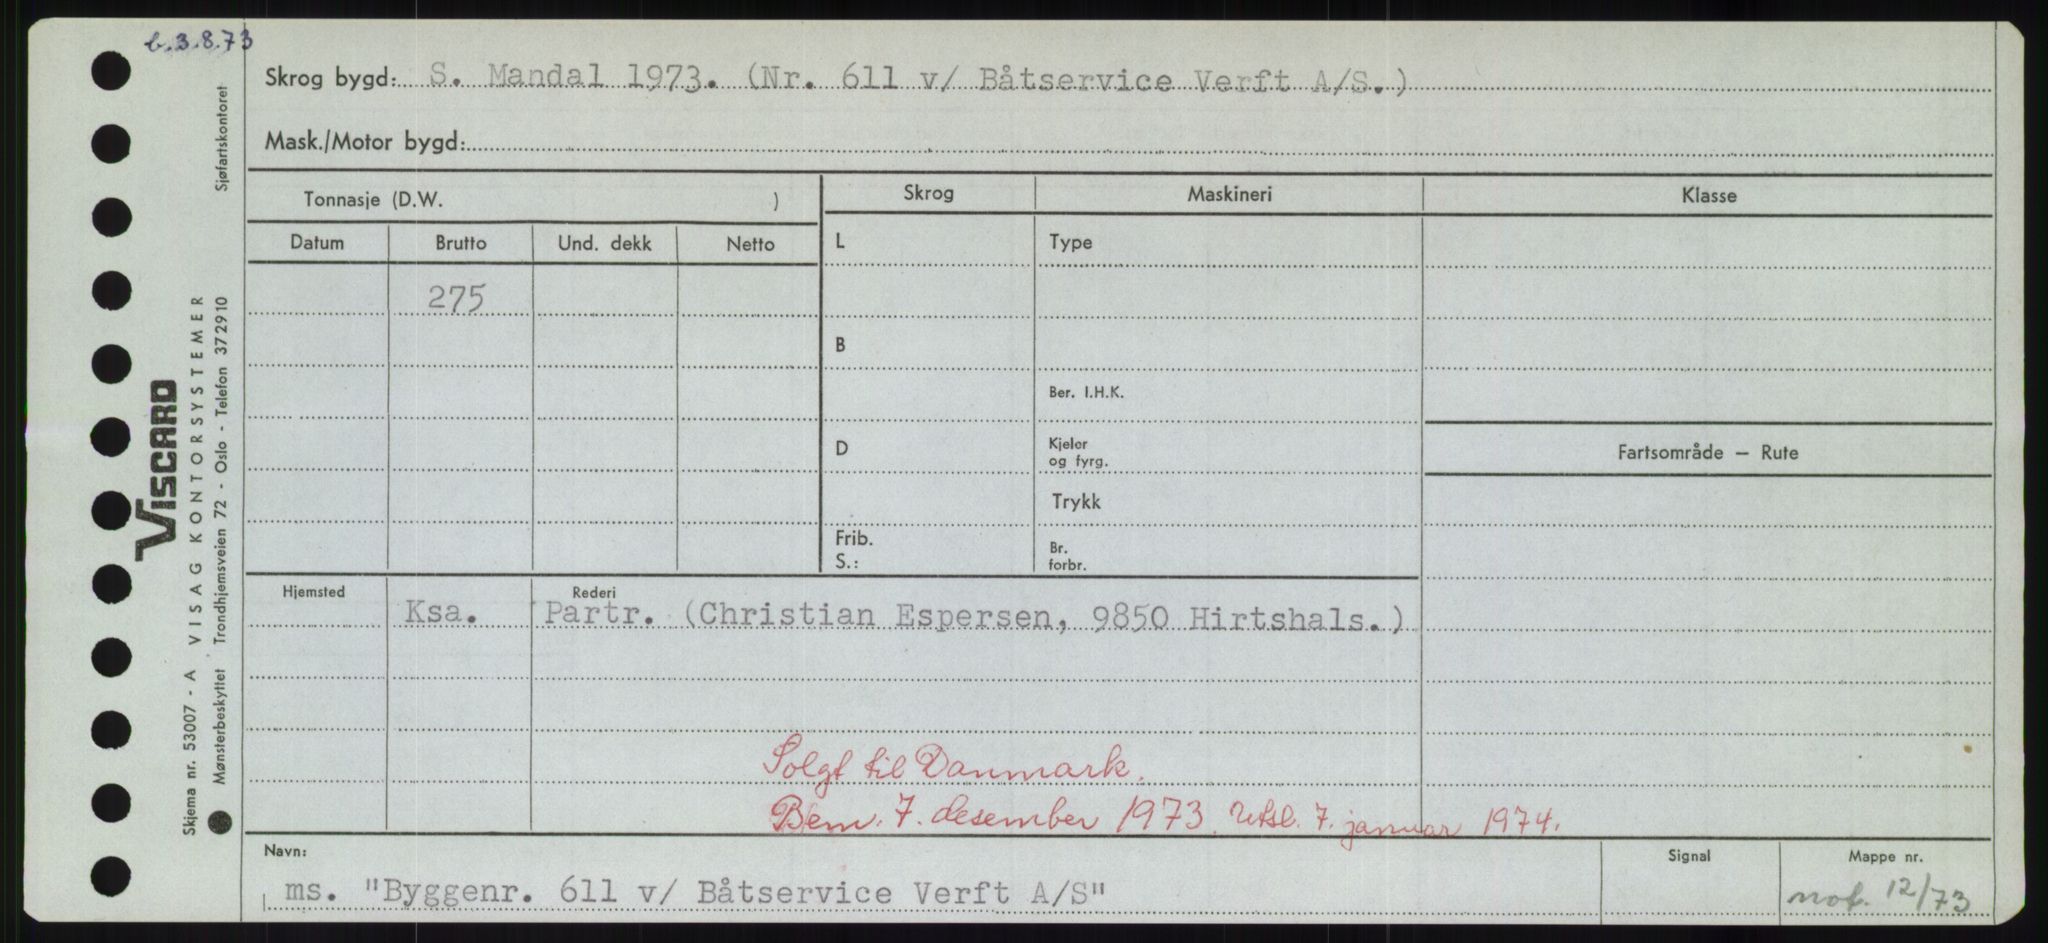 b. 3.8.73
Skrog bygd: S. Mandal 1973. (Nr. 611 v/ Båtservice Verft A/S.)
Mask./Motor bygd:
Tonnasje (D.W. )
Skrog Maskineri Klasse
Datum Brutto Und. dekk Netto
L Type
275
B
Ber. I.H.K.
D Kjeler og fyrg.
Fartsområde — Rute
Trykk
Frib. S.: Br. forbr.
Hjemsted Rederi
Ksa. Partr. (Christian Espersen, 9850 Hirtshals.)
Solgt til Danmark.
Bem. 7. desember 1973. Utsl. 7. januar 1974.
Navn: Signal Mappe nr.
ms. "Byggenr. 611 v/ Båtservice Verft A/S" not. 12/73
VISCARD
Skjema nr. 53007 - A VISAG KONTORSYSTEMER
Mønsterbeskyttet Trondhjemsveien 72 - Oslo - Telefon 372910 Sjøfartskontoret